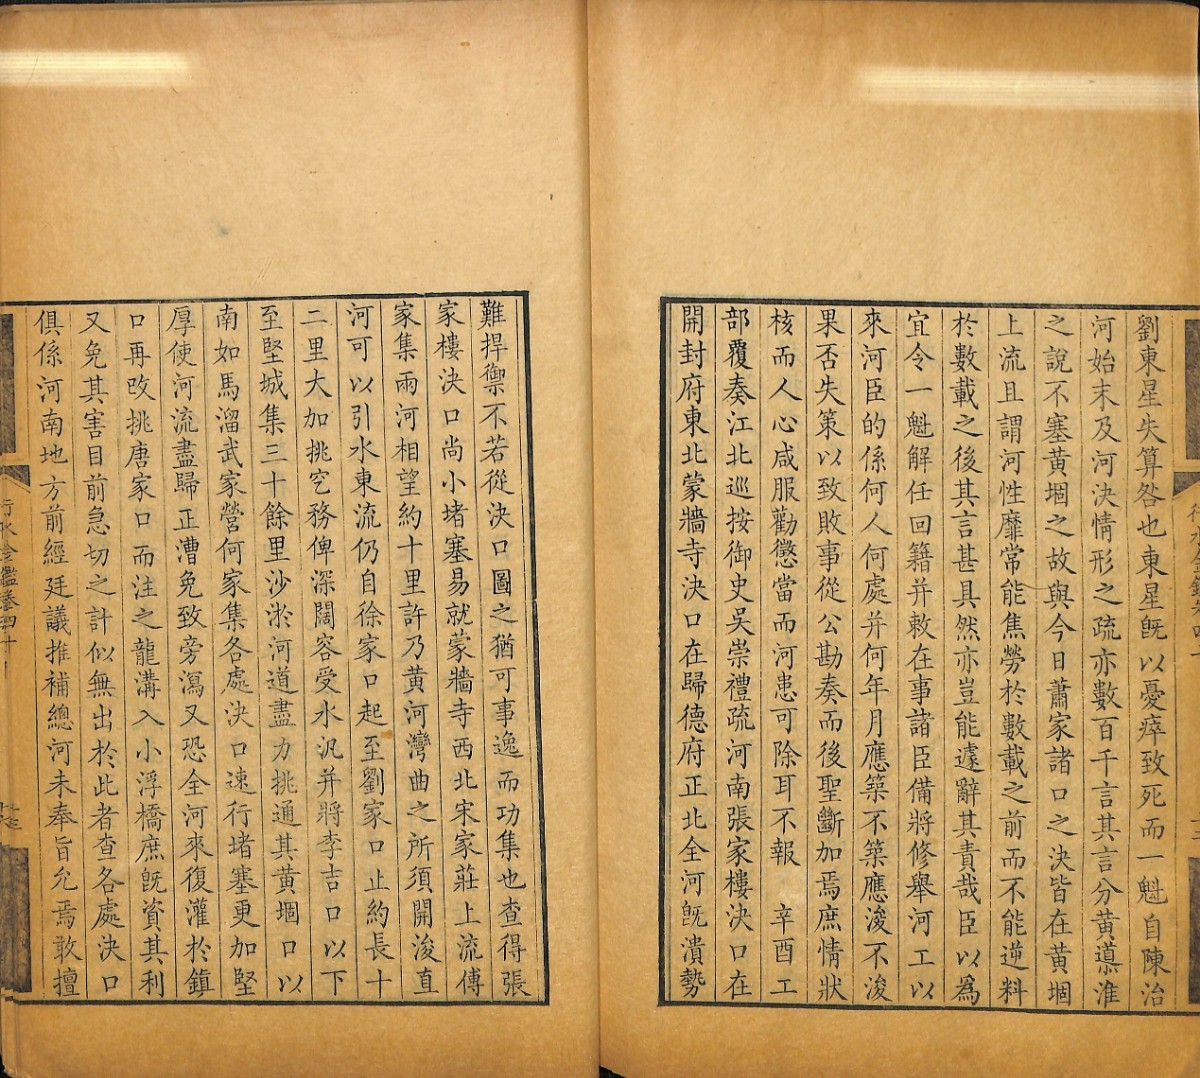 劉東星失算咎也東星旣以憂瘁致死而一魁自陳治
河始末及河決情形之疏亦數百千言其言分黃導淮
之說不塞黃堌之故與今日蕭家諸口之決皆在黃堌
上流且謂河性靡常能焦勞於數載之前而不能逆料
於數載之後其言甚具然亦豈能遽辭其責哉臣以爲
宜令一魁解任回籍并敕在事諸臣備將修舉河工以
來河臣的係何人何處并何年月應築不築應浚不浚
果否失策以致敗事從公勘奏而後聖斷加焉庶情狀
核而人心咸服勸懲當而河患可除耳不報　辛酉工
部覆奏江北巡按御史吳崇禮疏河南張家樓決口在
開封府東北蒙牆寺決口在歸德府正北全河旣潰勢
難捍禦不若從決口圖之猶可事逸而功集也查得張
家樓決口尚小堵塞易就蒙牆寺西北宋家莊上流傅
家集兩河相望約十里許乃黃河灣曲之所須開浚直
河可以引水東流仍自徐家口起至劉家口止約長十
二里大加挑穵務俾深闊容受水汎并將李吉口以下
至堅城集三十餘里沙淤河道盡力挑通其黃堌口以
南如馬溜武家營何家集各處決口速行堵塞更加堅
厚使河流盡歸正漕免致旁瀉又恐全河來復灌於鎮
口再改挑唐家口而注之龍溝入小浮橋庶旣資其利
又免其害目前急切之計似無出於此者查各處決口
俱係河南地方前經廷議推補總河未奉旨允焉敢擅
行水金鑑卷四十